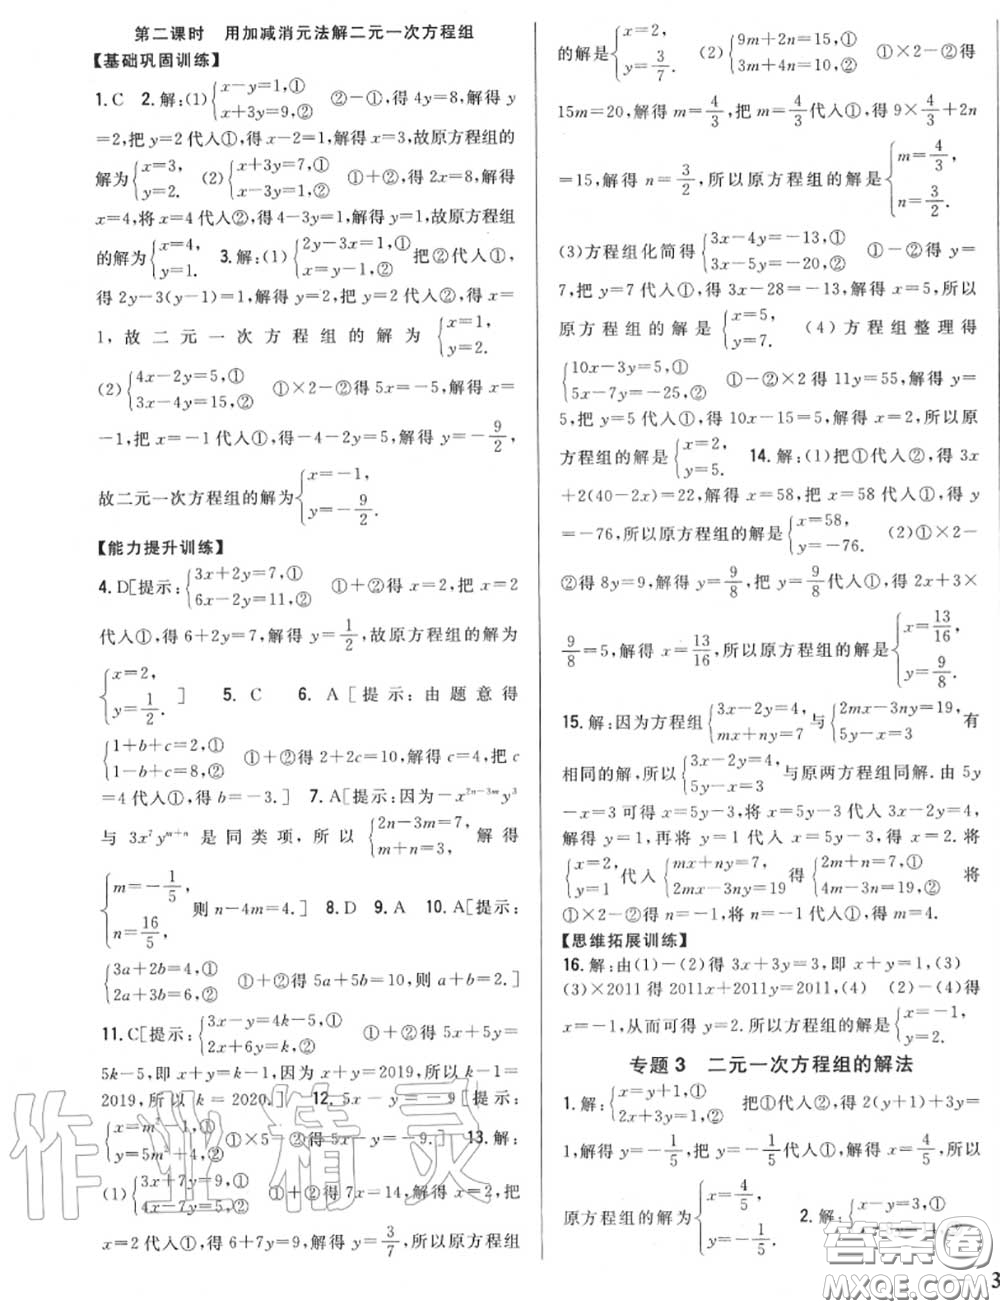 第二课时　用加减消元法解二元一次方程组
【基础巩固训练】
1.C　2.解:(1){x-y=1,① x+3y=9,②　②-①,得 4y=8,解得 y
=2,把 y=2 代入①,得 x-2=1,解得 x=3,故原方程组的
解为{x=3, y=2.　(2){x+3y=7,① x-3y=1,②　①+②,得 2x=8,解得
x=4,将 x=4 代入②,得 4-3y=1,解得 y=1,故原方程组
的解为{x=4, y=1.　3.解:(1){2y-3x=1,① x=y-1,②　把②代入①,
得 2y-3(y-1)=1,解得 y=2,把 y=2 代入②,得 x=
1,故二元一次方程组的解为{x=1, y=2.
(2){4x-2y=5,① 3x-4y=15,②　①×2-②得 5x=-5,解得 x=
-1,把 x=-1 代入①,得-4-2y=5,解得 y=-9/2,
故二元一次方程组的解为{x=-1, y=-9/2.
【能力提升训练】
4.D[提示:{3x+2y=7,① 6x-2y=11,②　①+②得 x=2,把 x=2
代入①,得 6+2y=7,解得 y=1/2,故原方程组的解为
{x=2, y=1/2.　]　5.C　6.A[提示:由题意得
{1+b+c=2,① 1-b+c=8,②　①+②得 2+2c=10,解得 c=4,把 c
=4 代入①,得 b=-3.]　7.A[提示:因为-x^(2n-3m)y^3
与 3x^7y^(m+n) 是同类项,所以{2n-3m=7, m+n=3,　解得
{m=-1/5, n=16/5,　则 n-4m=4.]　8.D　9.A　10.A[提示:
{3a+2b=4,① 2a+3b=6,②　①+②得 5a+5b=10,则 a+b=2.]
11.C[提示:{3x-y=4k-5,① 2x+6y=k,②　①+②得 5x+5y=
5k-5,即 x+y=k-1,因为 x+y=2019,所以 k-1=
2019,所以 k=2020.]　12.5x-y=-9[提示:
{x=m²-1,① y=5m²+4,②　①×5-②得 5x-y=-9.]　13.解:
(1){3x+7y=9,① 4x-7y=5,②　①+②得 7x=14,解得 x=2,把
x=2 代入①,得 6+7y=9,解得 y=3/7,所以原方程组
的解是{x=2, y=3/7.　(2){9m+2n=15,① 3m+4n=10,②　①×2-②,得
15m=20,解得 m=4/3,把 m=4/3代入①,得 9×4/3+2n
=15,解得 n=3/2,所以原方程组的解是{m=4/3, n=3/2.
(3)方程组化简得{3x-4y=-13,① 3x-5y=-20,②　①-②得 y=
7,把 y=7 代入①,得 3x-28=-13,解得 x=5,所以
原方程组的解是{x=5, y=7.　(4)方程组整理得
{10x-3y=5,① 5x-7y=-25,②　①-②×2 得 11y=55,解得 y=
5,把 y=5 代入①,得 10x-15=5,解得 x=2,所以原
方程组的解是{x=2, y=5.　14.解:(1)把①代入②,得 3x
+2(40-2x)=22,解得 x=58,把 x=58 代入①,得 y
=-76,所以原方程组的解是{x=58, y=-76.　(2)①×2-
②得 8y=9,解得 y=9/8,把 y=9/8代入①,得 2x+3×
9/8=5,解得 x=13/16,所以原方程组的解是{x=13/16, y=9/8.
15.解:因为方程组{3x-2y=4, mx+ny=7与{2mx-3ny=19, 5y-x=3　有
相同的解,所以{3x-2y=4, 5y-x=3　与原两方程组同解.由 5y
-x=3 可得 x=5y-3,将 x=5y-3 代入 3x-2y=4,
解得 y=1,再将 y=1 代入 x=5y-3,得 x=2.将
{x=2, y=1代入{mx+ny=7, 2mx-3ny=19得{2m+n=7,① 4m-3n=19,②　将
①×2-②得 n=-1,将 n=-1 代入①,得 m=4.
【思维拓展训练】
16.解:由(1)-(2)得 3x+3y=3,即 x+y=1,(3)
(3)×2011 得 2011x+2011y=2011,(4)　(2)-(4)得
x=-1,从而可得 y=2.所以原方程组的解是{x=-1, y=2.
专题 3　二元一次方程组的解法
1.解:{x=y+1,① 2x+3y=1,②　把①代入②,得 2(y+1)+3y=
1,解得 y=-1/5,把 y=-1/5代入①,得 x=4/5,所以
原方程组的解为{x=4/5, y=-1/5.　2.解:{x-y=3,①
作业精灵
答案圈
MXQE.COM
3